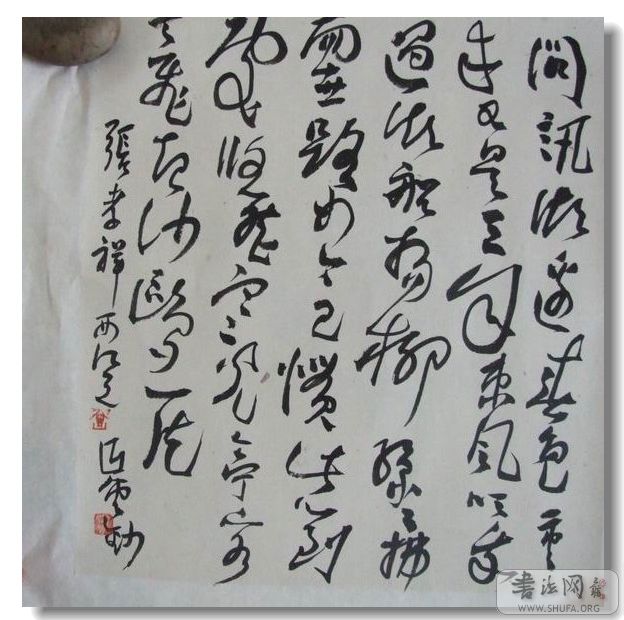 問訊湖邊春色重
來又是三年東風吹我
過湖船楊柳絲絲拂
面世路如今已慣此心到
處悠然寒光亭下水
天飛起沙鷗一片
張孝祥西江月
書法网
WWW.SHUFA.ORG